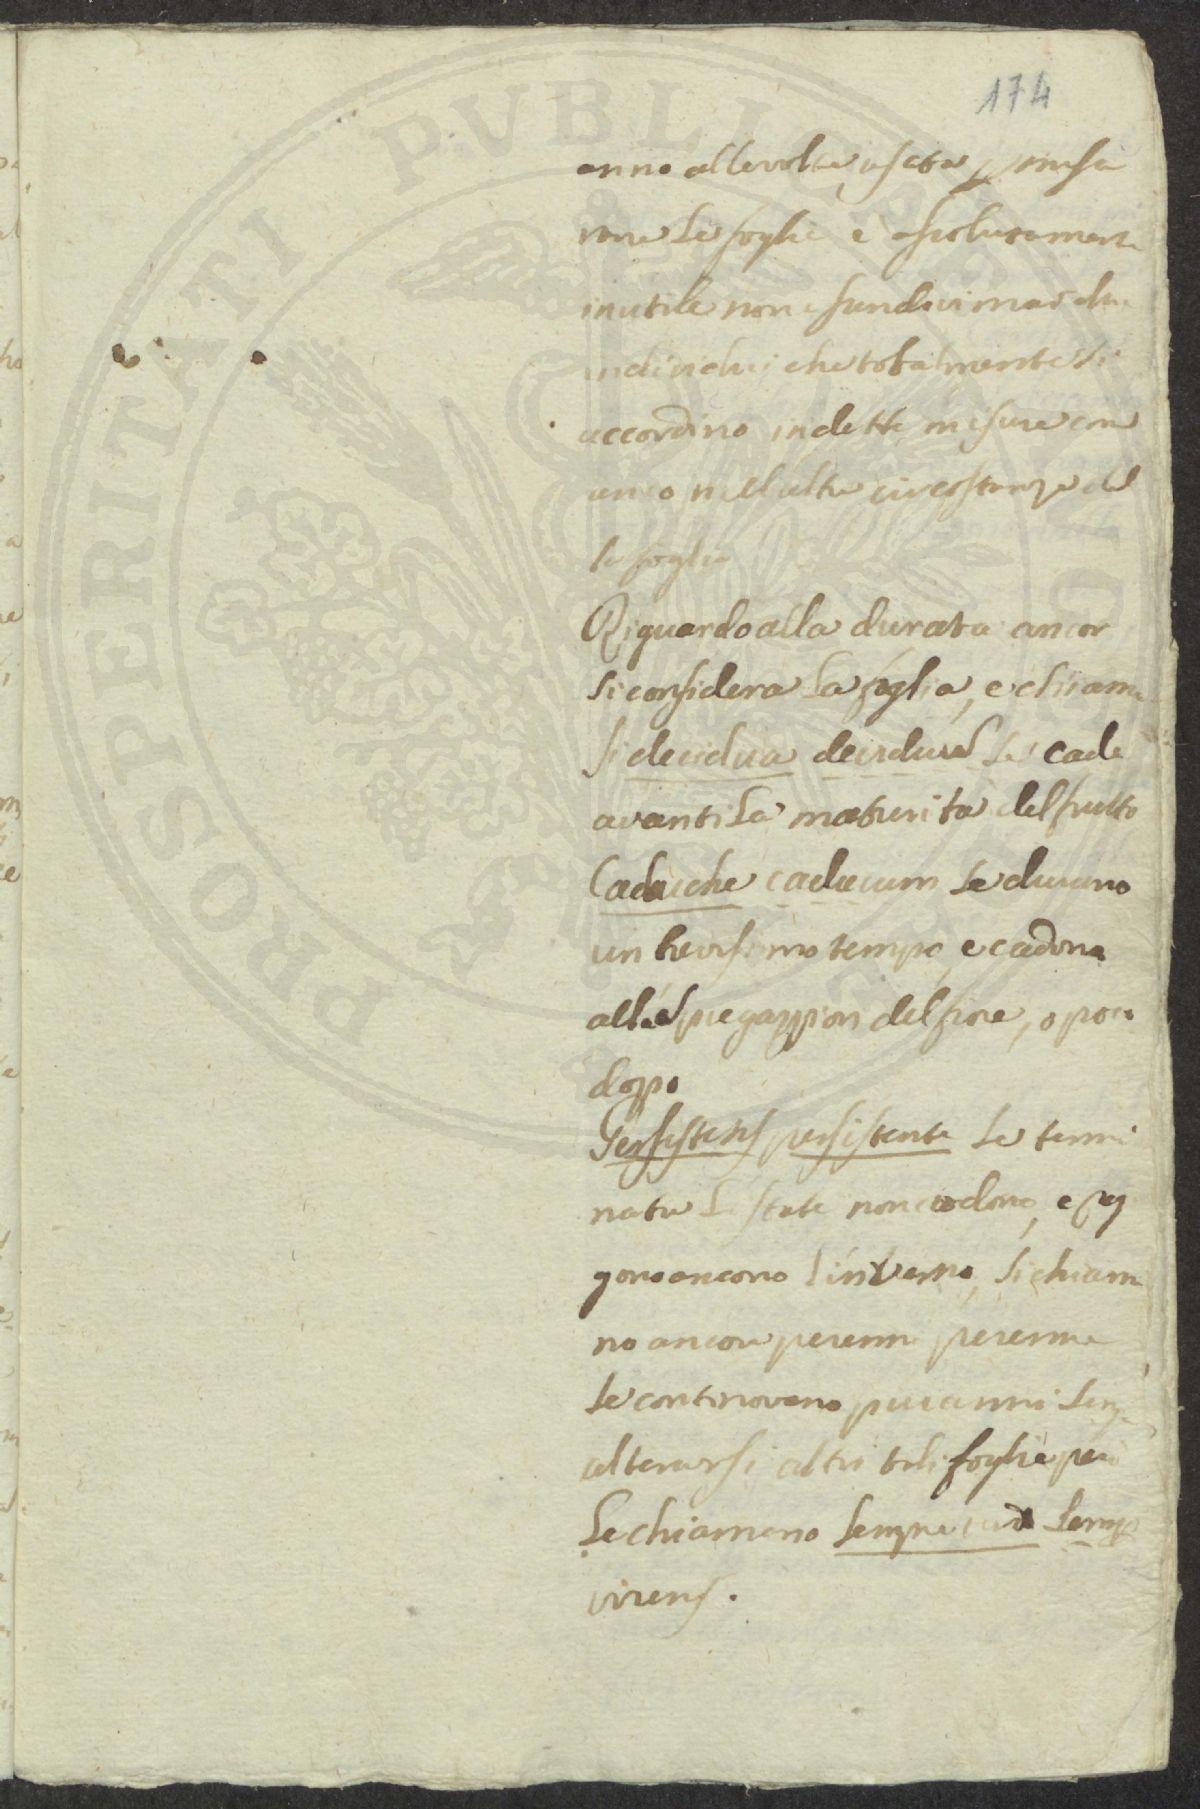 174
PROSPERITATI PVBLICAE
anno alle volte, p misu
rare le foglie e assolutamente
inutile non essendovi mai due
individui che totalmente si
accordino in dette misure come
anco nell altre circostanze del
le foglie
Riguardo alla durata ancor
si considera la foglia, e chiama
si decidua deciduus se cade
avanti la maturita del frutto
Caduche caducum se durano
un brevissimo tempo, e cadono
alla spiegazzion del fiore, o poco
doppo
Persistens persistente se termi
nata l state non cadono, e
gono ancora l inverno, si chiama
no ancora perenni perenne
se continovano piu anni senz
alterarsi altri tali foglie però
le chiamano sempre semp
virens.